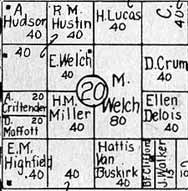 A. Hudson 40
R.M. Hustin 40
H. Lucas 40
C.
40
40
E. Welch 40
M. Welch 80
D. Crum 40
20
A. 20 Crittender
D. 20 Moffott
H.M. Miller 40
Ellen Delois 40
E.M. Highfield 40
40
Hattis Van Buskirk 40
B.F. Clifford
J. Walker